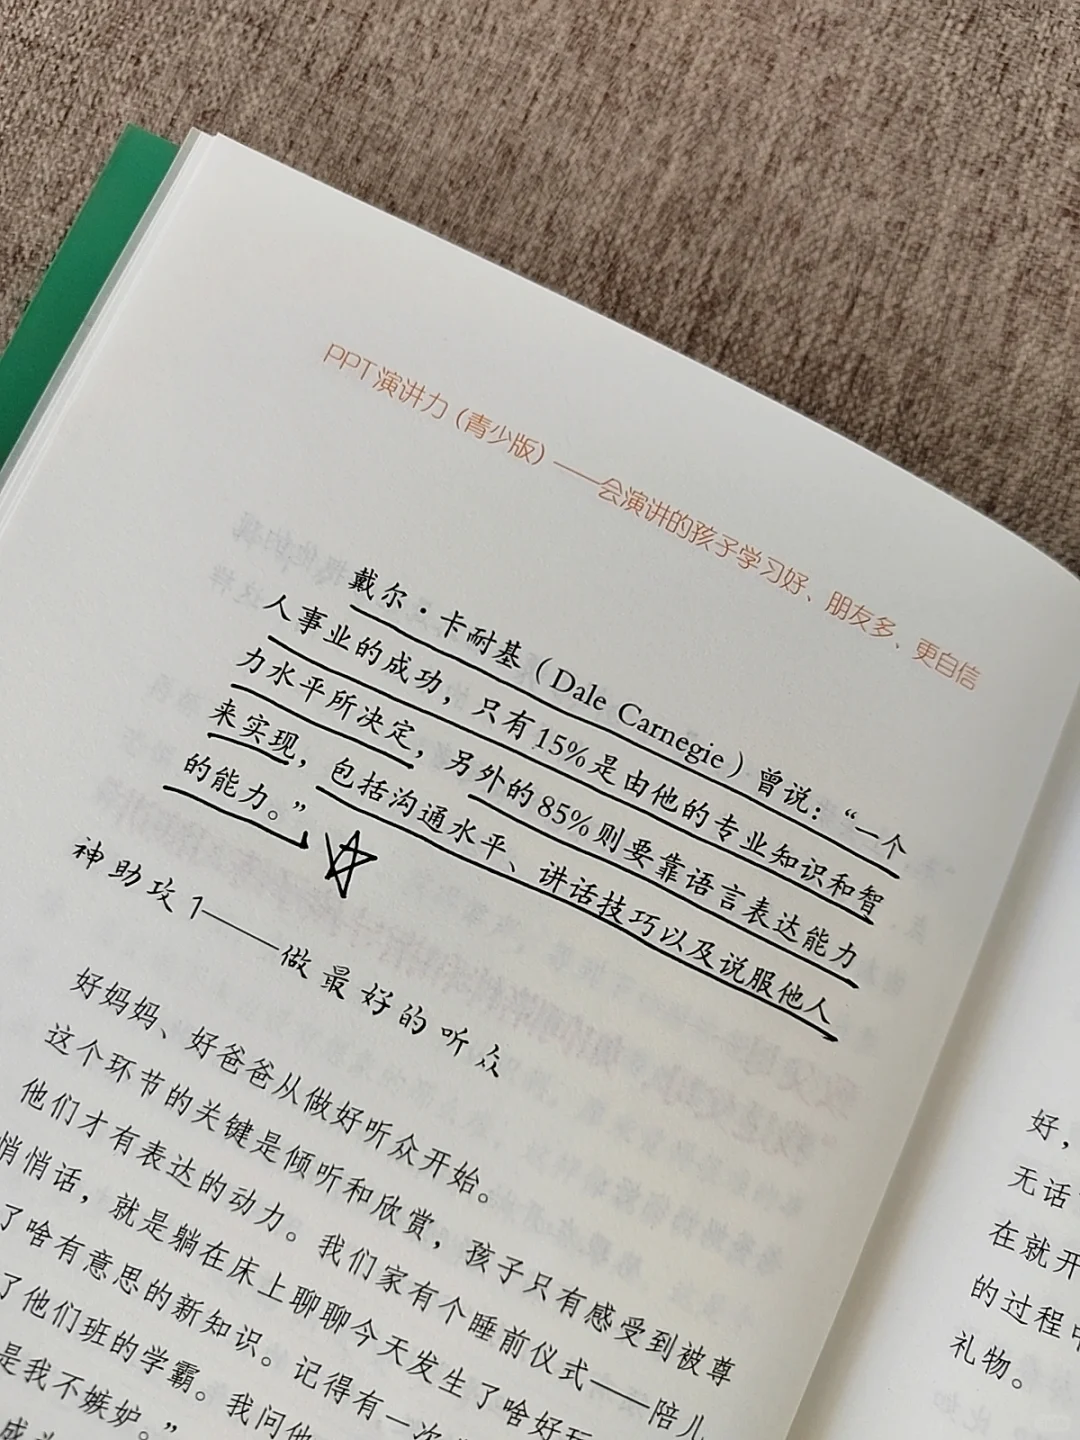 PPT演讲力（青少版）——会演讲的孩子学习好、朋友多、更自信
戴尔·卡耐基（Dale Carnegie）曾说：“一个
人事业的成功，只有15%是由他的专业知识和智
力水平所决定，另外的85%则要靠语言表达能力
来实现，包括沟通水平、讲话技巧以及说服他人
的能力。”
神助攻1——做最好的听众
好妈妈、好爸爸从做好听众开始。
这个环节的关键是倾听和欣赏，孩子只有感受到被尊
他们才有表达的动力。我们家有个睡前仪式——陪儿
悄悄话，就是躺在床上聊聊今天发生了啥好玩
了啥有意思的新知识。记得有一次
了他们班的学霸。我问他
是我不嫉妒。”
好，
无话
在就开
的过程中
礼物。